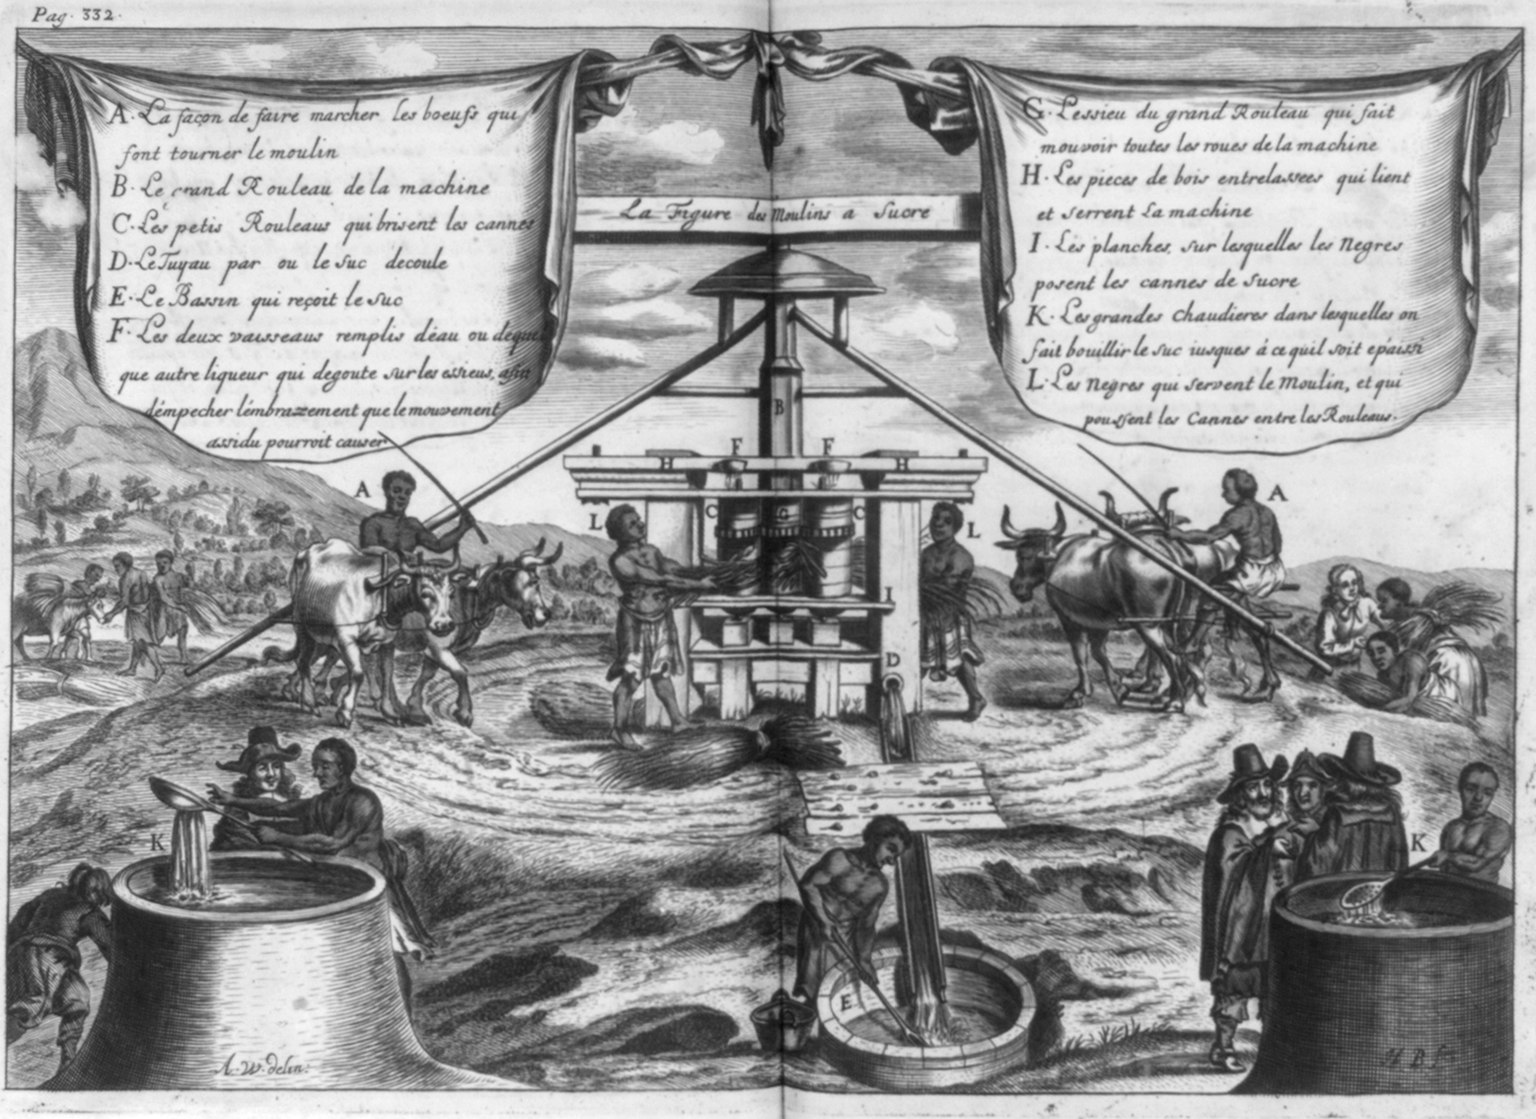 Pag. 332.
A. La façon de faire marcher les boeufs qui
font tourner le moulin
B. Le grand Rouleau de la machine
C. Les petis Rouleaus qui brisent les cannes
D. Le Tuyau par ou le suc decoule
E. Le Bassin qui reçoit le suc
F. Les deux vaisseaus remplis déau ou déquel
que autre liqueur qui degoute sur les essieus, afin
démpecher lémbrazement que le mouvement
assidu pourroit causer
La Figure des Moulins a Sucre
G. Lessieu du grand Rouleau qui fait
mouvoir toutes les roues de la machine
H. Les pieces de bois entrelassees qui lient
et serrent La machine
I. Les planches, sur lesquelles les Negres
posent les cannes de sucre
K. Les grandes chaudieres dans lesquelles on
fait bouillir le suc iusques á ce quil soit epaissi
L. Les Negres qui servent le Moulin, et qui
poussent les Cannes entre les Rouleaus.
B
F F
H H
A A
L C G C L
I
D
K K
E
A. W. delin:
H B f